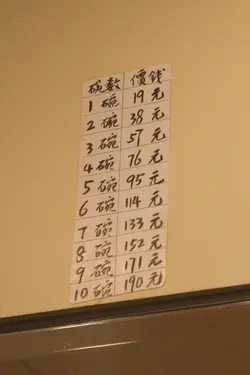 碗數 價錢
1 碗 19 元
2 碗 38 元
3 碗 57 元
4 碗 76 元
5 碗 95 元
6 碗 114 元
7 碗 133 元
8 碗 152 元
9 碗 171 元
10 碗 190 元